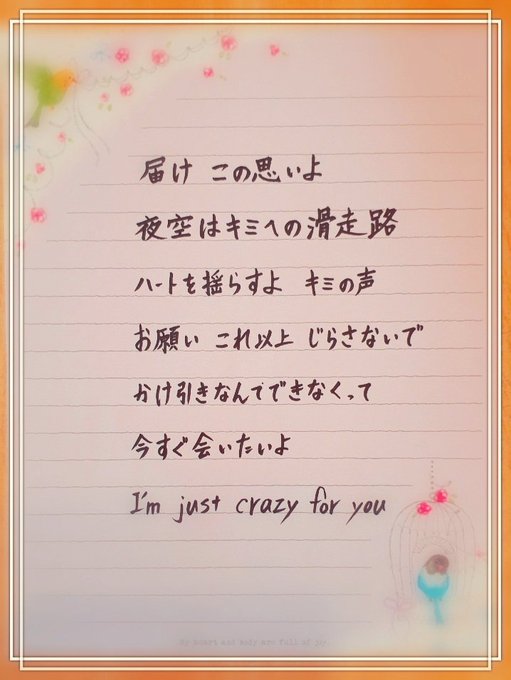 届け この思いよ
夜空はキミへの滑走路
ハートを揺らすよ キミの声
お願い これ以上 じらさないで
かけ引きなんてできなくって
今すぐ会いたいよ
I'm just crazy for you
My heart and body are full of joy.